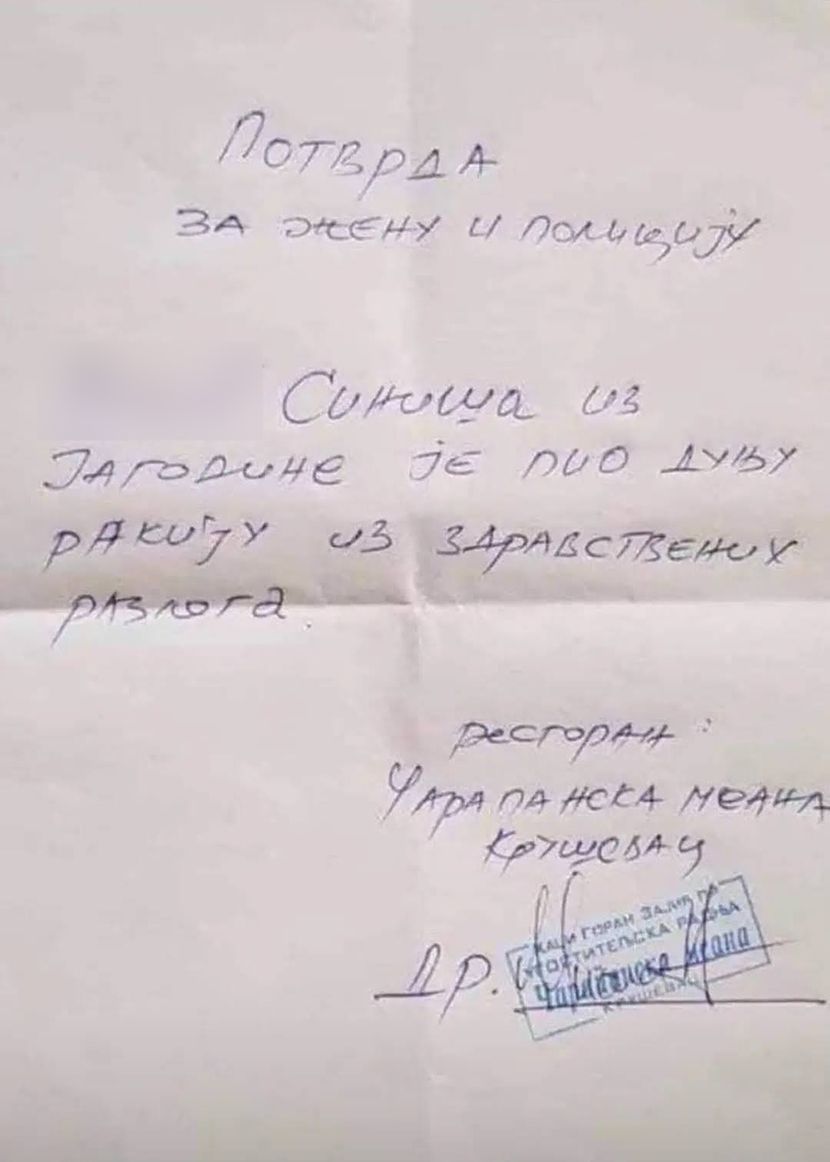 Потврда
за жену и полицију
Синиша из
Јагодине је пио дуњу
ракију из здравствених
разлога.
ресторан:
Чарапанска меана
Крушевац
Др.
ГОРАН
УГОСТИТЕЉСКА РАДЊА
Чарапанска меана
КРУШЕВАЦ